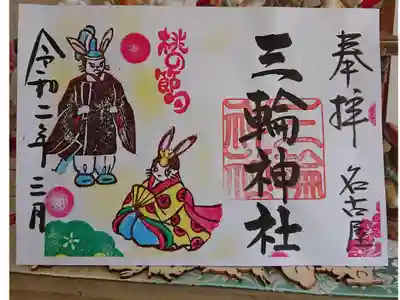 奉拝
名古屋
三輪神社
三輪神社
桃の節句
令和二年三月